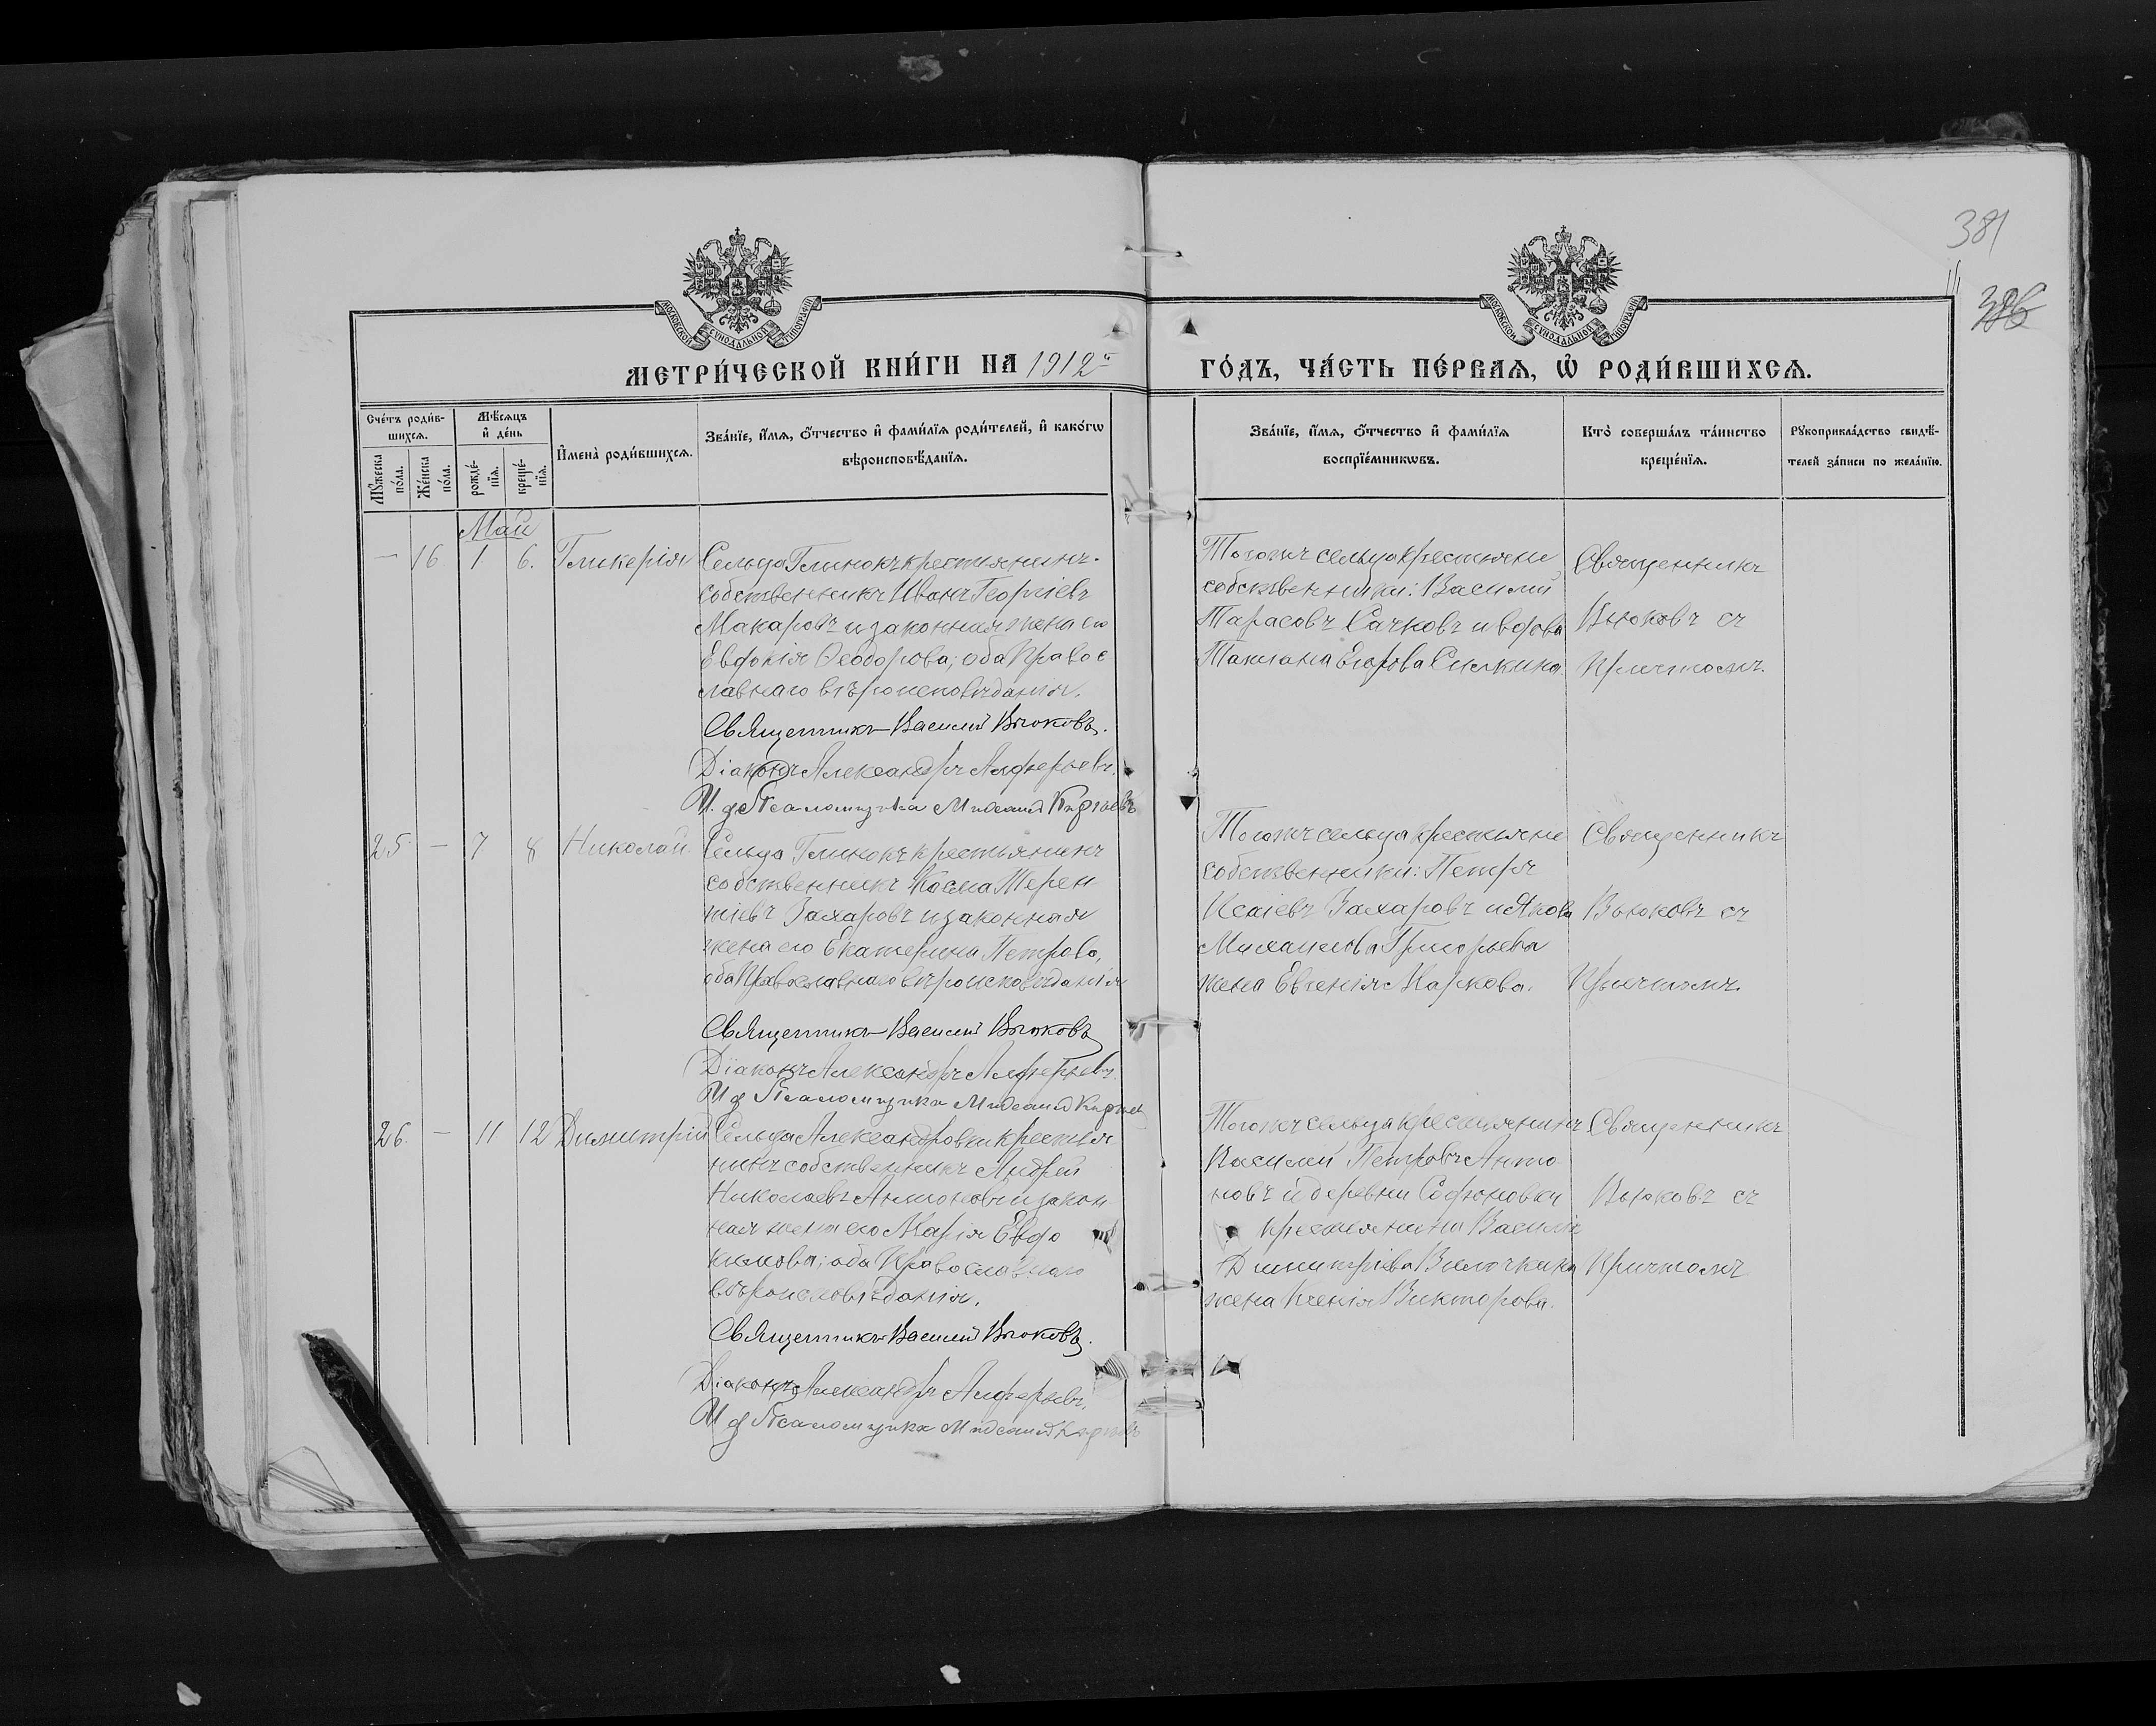 381
386
МЕТРИ́ЧЕСКОЙ КНИ́ГИ НА 1912й ГО́ДЪ, ЧА́СТЬ ПЕ́РВАЯ, Ѽ РОДИ́ВШИХСЯ.
Сче́тъ роди́в-
шихся.
Мѣ́сяцъ
и҆ де́нь
Мꙋ́жеска
по́ла.
Же́нска
по́ла.
рожде́-
нїя.
креще́-
нїя.
И҆мена̀ роди́вшихся.
Зва́нїе, и҆́мя, ѻ҆́тчество и҆ фами́лїя роди́телей, и҆ како́гѡ
вѣроисповѣ́данїя.
Зва́нїе, и҆́мя, ѻ҆́тчество и҆ фами́лїя
воспрїе́мникѡвъ.
Кто̀ соверша́лъ та́инство
креще́нїя.
Рꙋкоприкла́дство свидѣ́-
телей за́писи по жела́нїю.
Май
— 16 1 6. Гликерія
Сельца Глинокъ крестьянинъ-
собственникъ Иванъ Георгіевъ
Макаровъ и законная жена его
Евдокія Ѳеодорова; оба Право с
лавнаго вѣроисповѣданія.
Священникъ Василій Вьюковъ.
Діаконъ Александръ Алферьевъ.
И. д. Псаломщика
Тогожъ сельца крестьяне
собственники: Василій
Тарасовъ Сачковъ и вдова
Татіана Егорова
Священникъ
Вьюковъ съ
Причтомъ.
25 — 7 8 Николай
Сельца Глинокъ крестьянинъ
собственникъ Косма Терен
тіевъ Захаровъ и законная
жена его Екатерина Петрова,
оба Православнаго вѣроисповѣданія
Священникъ Василій Вьюковъ
Діаконъ Александръ Алферьевъ.
И д Псаломщика
Тогожъ сельца крестьяне
собственники: Петръ
Исаіевъ Захаровъ и Якова
Михаилова Григорьева
жена Евгенія Маркова.
Священникъ
Вьюковъ съ
Причтомъ.
26. — 11 12 Димитрій
Сельца Александровки крестья
нинъ собственникъ Андрей
Николаевъ Антоновъ и закон
ная жена его Марія Евдо
кимова; оба Православнаго
вѣроисповѣданія.
Священникъ Василій Вьюковъ.
Діаконъ Александръ Алферьевъ.
И д Псаломщика
Тогожъ сельца крестьянинъ
Василій Петровъ Анто
новъ и деревни Софоновки
крестьянина Василія
Димитріева
жена Ксенія Викторова.
Священникъ
Вьюковъ съ
Причтомъ